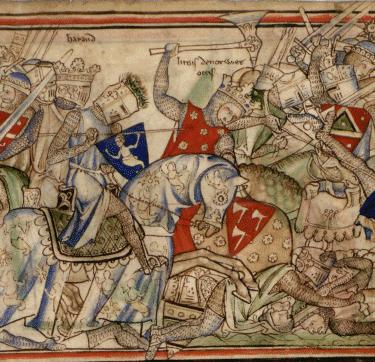 haraud
li reis de norweie
ocis